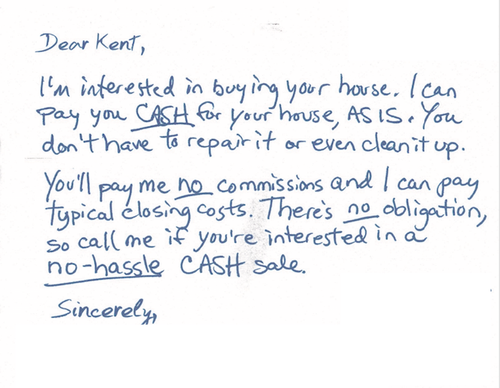 Dear Kent,
I'm interested in buying your house. I can
pay you CASH for your house, AS IS. You
don't have to repair it or even clean it up.
You'll pay me no commissions and I can pay
typical closing costs. There's no obligation,
so call me if you're interested in a
no-hassle CASH sale.
Sincerely,